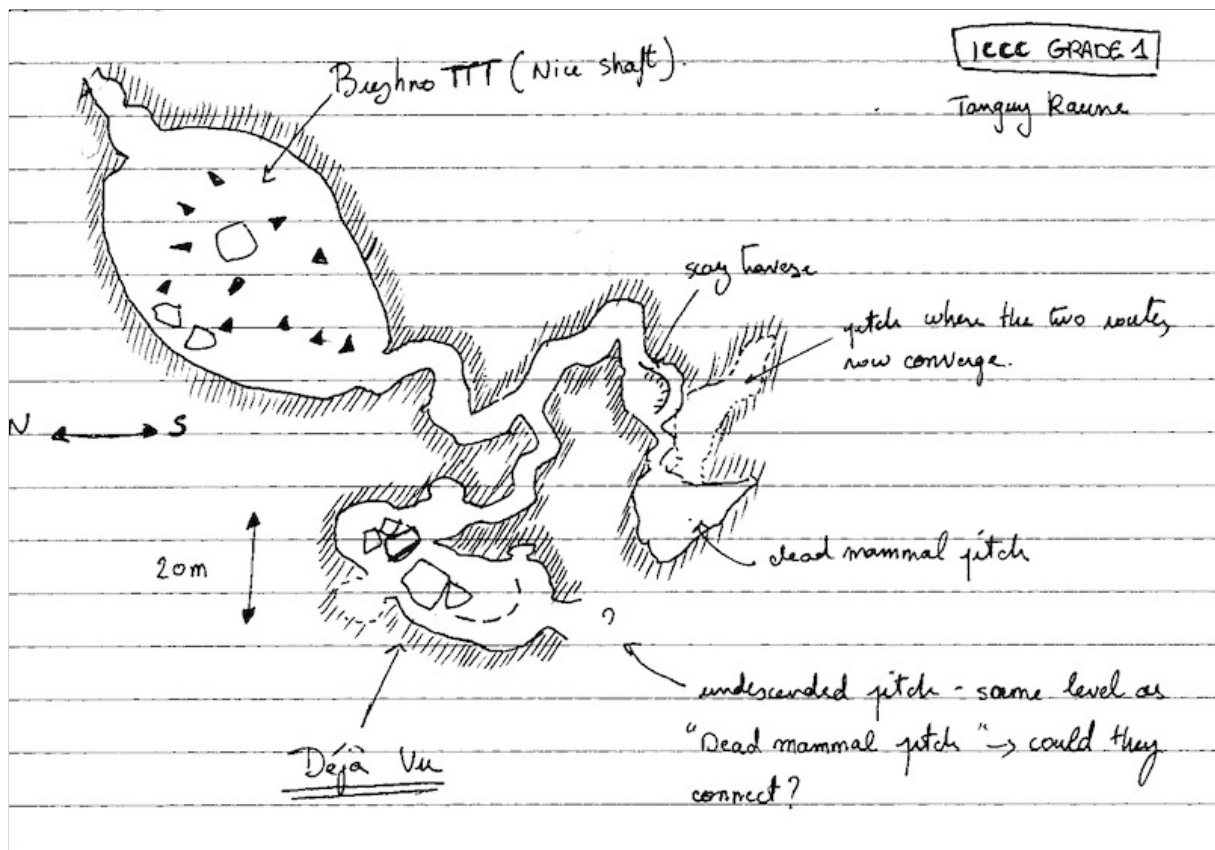 ICCC GRADE 1
Tanguy Racine
(Nice shaft).
scary traverse
pitch where the two routes
now converge.
N S
20m
dead mammal pitch
?
undescended pitch - same level as
"Dead mammal pitch" → could they
connect?
Déjà Vu